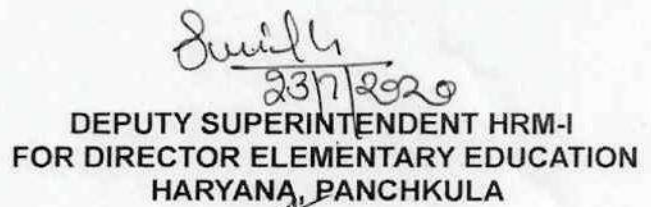 23/7/2020
DEPUTY SUPERINTENDENT HRM-I
FOR DIRECTOR ELEMENTARY EDUCATION
HARYANA, PANCHKULA